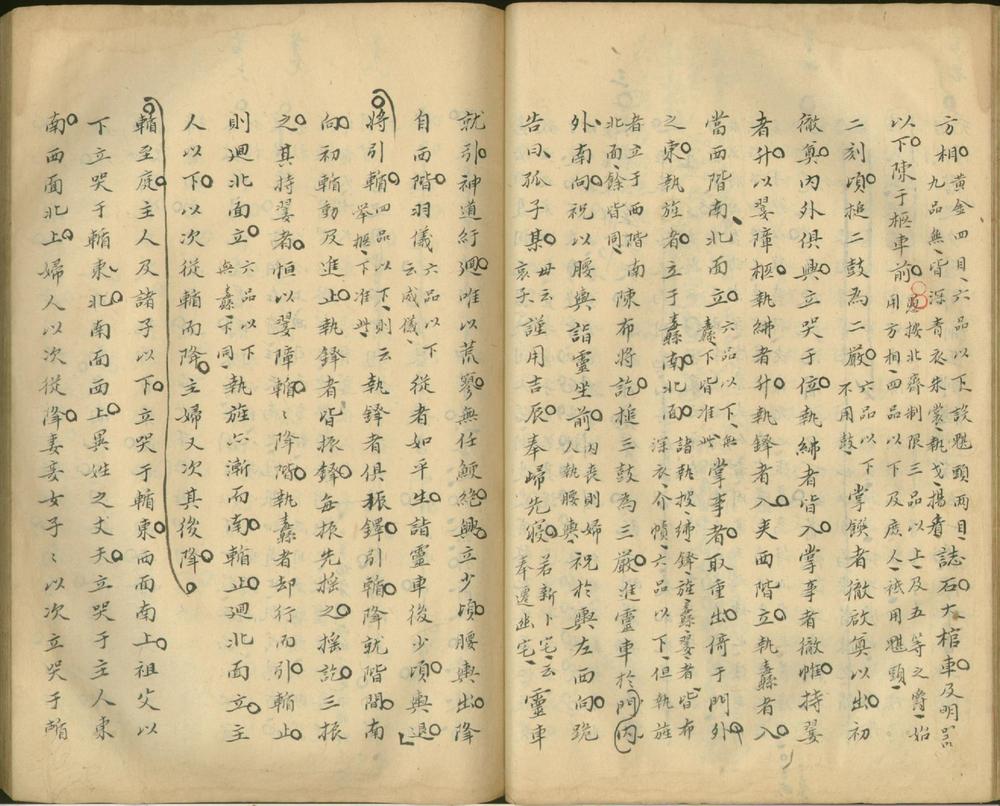 方相黃金四目六品以下設魌頭兩目九品無皆深青衣朱裳執戈揚盾誌石大棺車及明器
以下陳于柩車前愚按北齊制限三品以上及五等之爵始用方相四品以下及庶人祗用魌頭
二刻頃搥二鼓為二嚴六品以下不用鼓掌饌者徹啟奠以出初
徹奠內外俱興立哭于位執紼者皆入掌事者徹帷持翣
者升以翣障柩執紼者升執鐸者入夾西階立執纛者入
當西階南北面立六品以下無纛下皆准此掌事者取重出倚于門外
之東執旌者立于纛南北面諸執披紼鐸旌纛翣者皆布深衣介幘六品以下但執旌
者立于西階南北面餘皆同陳布將訖搥三鼓為三嚴進靈車於門內
外南向祝以腰輿詣靈坐前內喪則婦人執腰輿祝於輿左西向跪
告曰孤子某母云哀子謹用吉辰奉歸先寢若新卜宅云奉遷幽宅靈車
就引神道紆迴唯以荒寥無任鯁絕興立少頃腰輿出降
自西階羽儀六品以下云威儀從者如平生詣靈車後少頃輿退
將引輴四品以下則云舉柩下准此執鐸者俱振鐸引輴降就階間南
向初輴動及進止執鐸者皆振鐸每振先搖之搖訖三振
之其持翣者恒以翣障輴輴降階執纛者却行而引輴止
則迴北面立六品以下無纛下同執旌亦漸而南輴止迴北面立主
人以下以次從輴而降主婦又次其後降
輴至庭主人及諸子以下立哭于輴東西面南上祖父以
下立哭于輴東北南面西上異姓之丈夫立哭于主人東
南西面北上婦人以次從降妻妾女子子以次立哭于輴